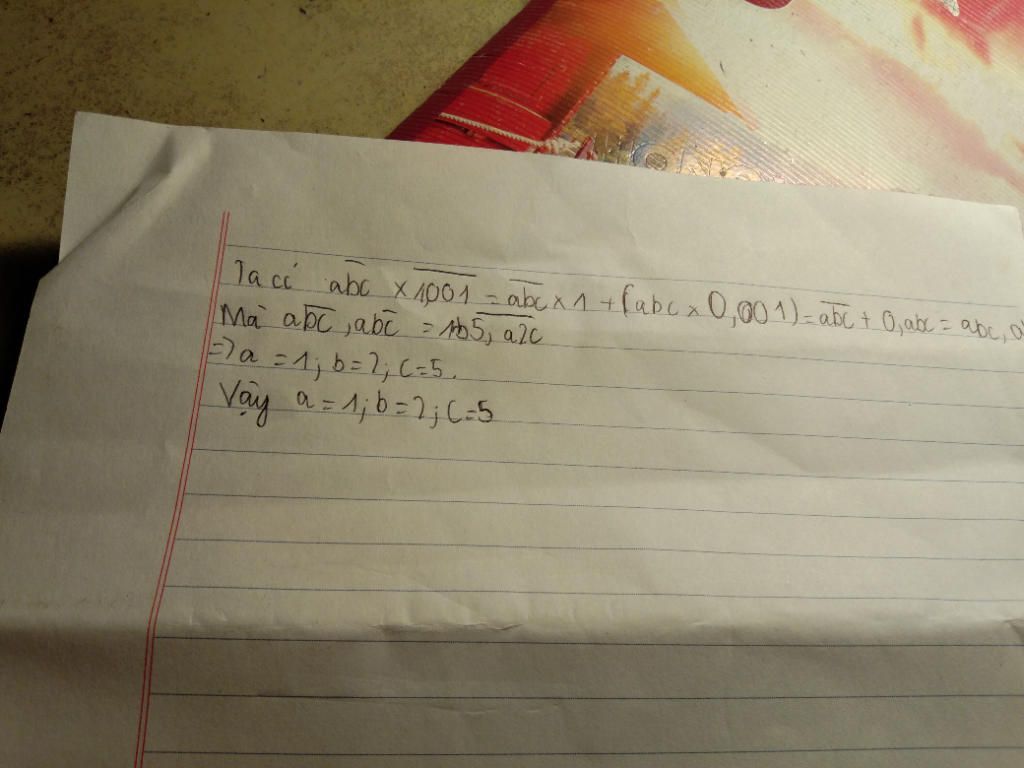 Ta có abc × 1,001 = abc × 1 + (abc × 0,001) = abc + 0,abc = abc,a
Mà abc,abc = 1b5,a2c
=> a = 1; b = 2; c = 5.
Vậy a = 1; b = 2; c = 5